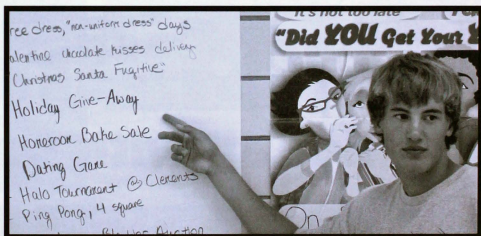 ree dress, "non-uniform dress" days
alentine chocolate kisses delivery
"Christmas Santa Fugitive"
Holiday Give-Away
Homeroom Bake Sale
Dating Game
Halo Tournament @ Clements
Ping Pong, 4 square
Auction
It's not too late
"Did YOU Get Your
On